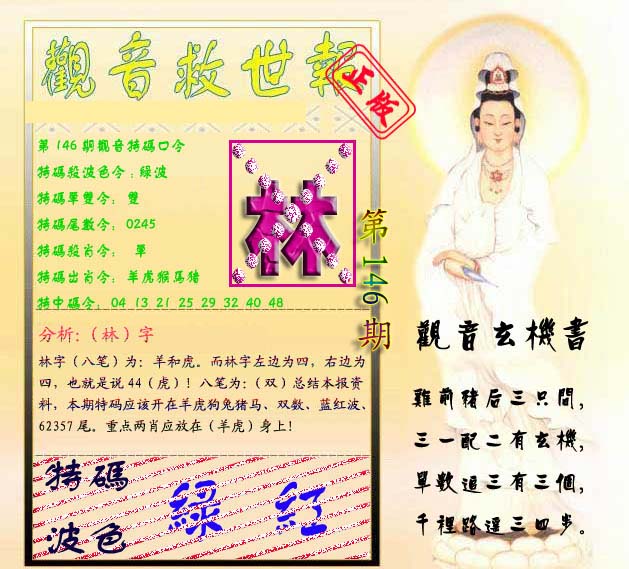 觀音救世報
正版
第146期觀音特碼口令
特碼殺波色令：綠波
特碼單雙令： 雙
特碼尾數令： 0245
特碼殺肖令： 單
特碼出肖令： 羊虎猴馬豬
特中碼令： 04 13 21 25 29 32 40 48
林
第146期
分析：（林）字
林字（八笔）为：羊和虎。而林字左边为四，右边为
四，也就是说44（虎）！八笔为：（双）总结本报资
料，本期特码应该开在羊虎狗兔猪马、双数、蓝红波、
62357尾。重点两肖应放在（羊虎）身上！
特碼
波色
綠 紅
觀音玄機書
雞前豬后三只間，
三一配二有玄機，
單數過三有三個，
千裡路遥三四步。